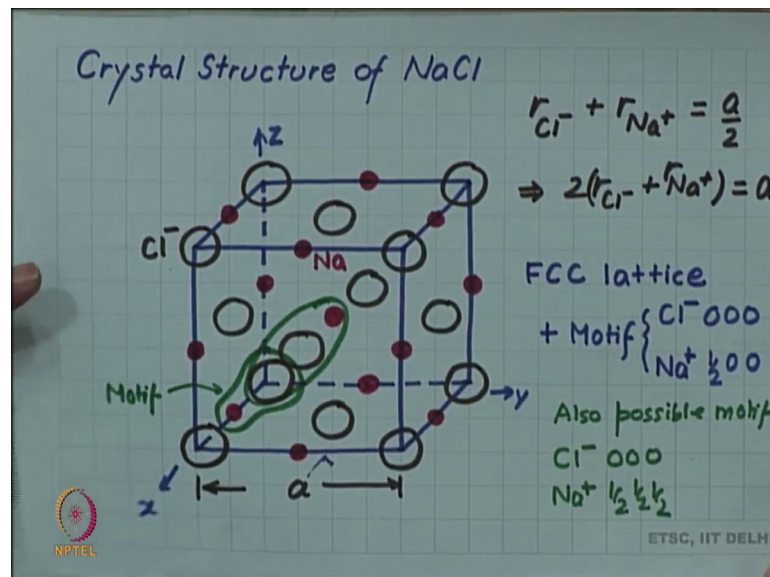 Crystal Structure of NaCl
r Cl⁻ + r Na⁺ = a/2
⇒ 2(r Cl⁻ + r Na⁺) = a
z
Cl⁻
Na
FCC lattice
+ Motif { Cl⁻ 000
Na⁺ ½00
Motif
y
Also possible motif
Cl⁻ 000
Na⁺ ½ ½ ½
x
a
NPTEL
ETSC, IIT DELH